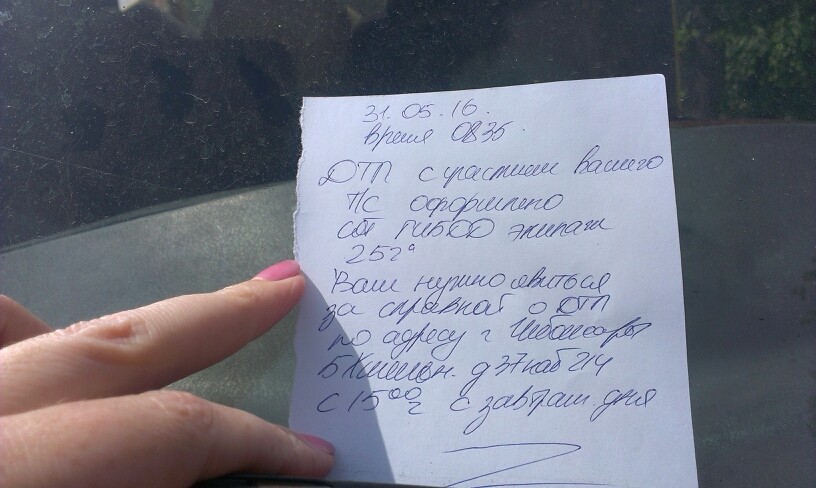 31.05.16.
время 0835.
ДТП с участием вашего
т/с оформлено
ГИБДД экипаж
252
Вам нужно явиться
за справкой о ДТП
по адресу г Чебоксары
д 37 каб 214
с 15⁰⁰ с завтраш. дня